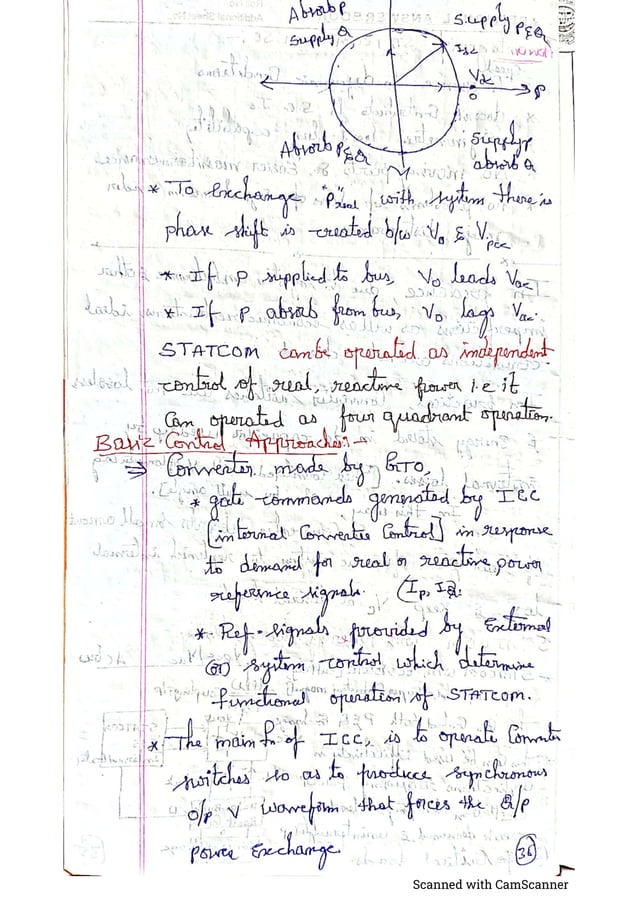 Absorb P
Supply Q
Supply P & Q
Isc
Vdc
P
Absorb P & Q
Supply P
absorb Q
* To Exchange "Preal" with system there is
phase shift is created b/w Vo & Vpcc
* If P supplied to bus, Vo leads Vac
* If P absorb from bus, Vo lags Vac.
STATCOM can be operated as independent
control of real, reactive power i.e it
can operated as four quadrant operation.
Basic Control Approaches:-
⇒ Converter made by GTO,
* gate commands generated by ICC
[internal Converter Control] in response
to demand for real or reactive power
reference signals. (Ip, IQ.
* Ref. signals provided by External
(or) system control which determine
functional operation of STATCOM.
* The main fn of ICC, is to operate Converter
switches so as to produce synchronous
o/p V waveform that forces the Q/P
power Exchange
36
Scanned with CamScanner